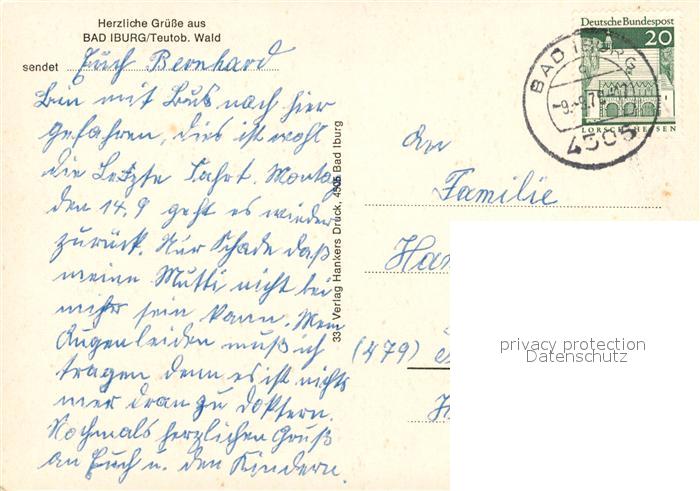 Herzliche Grüße aus
BAD IBURG/Teutob. Wald
sendet Euch Bernhard
Bin mit Bus nach hier
gefahren, dies ist wohl
die Letzte Fahrt. Montag
den 14.9 geht es wieder
zurück. Nur Schade daß
meine Mutti nicht bei
mihr sein kann. Mein
Augenleiden muß ich
tragen denn es ist nichts
mer dran zu doktern.
Nochmals herzlichen Gruß
an Euch u. den Kindern.
334 Verlag Hankers Druck, 4505 Bad Iburg
Deutsche Bundespost
20
LORSCH/HESSEN
BAD IBURG
4505
An
Familie
(479)
privacy protection
Datenschutz